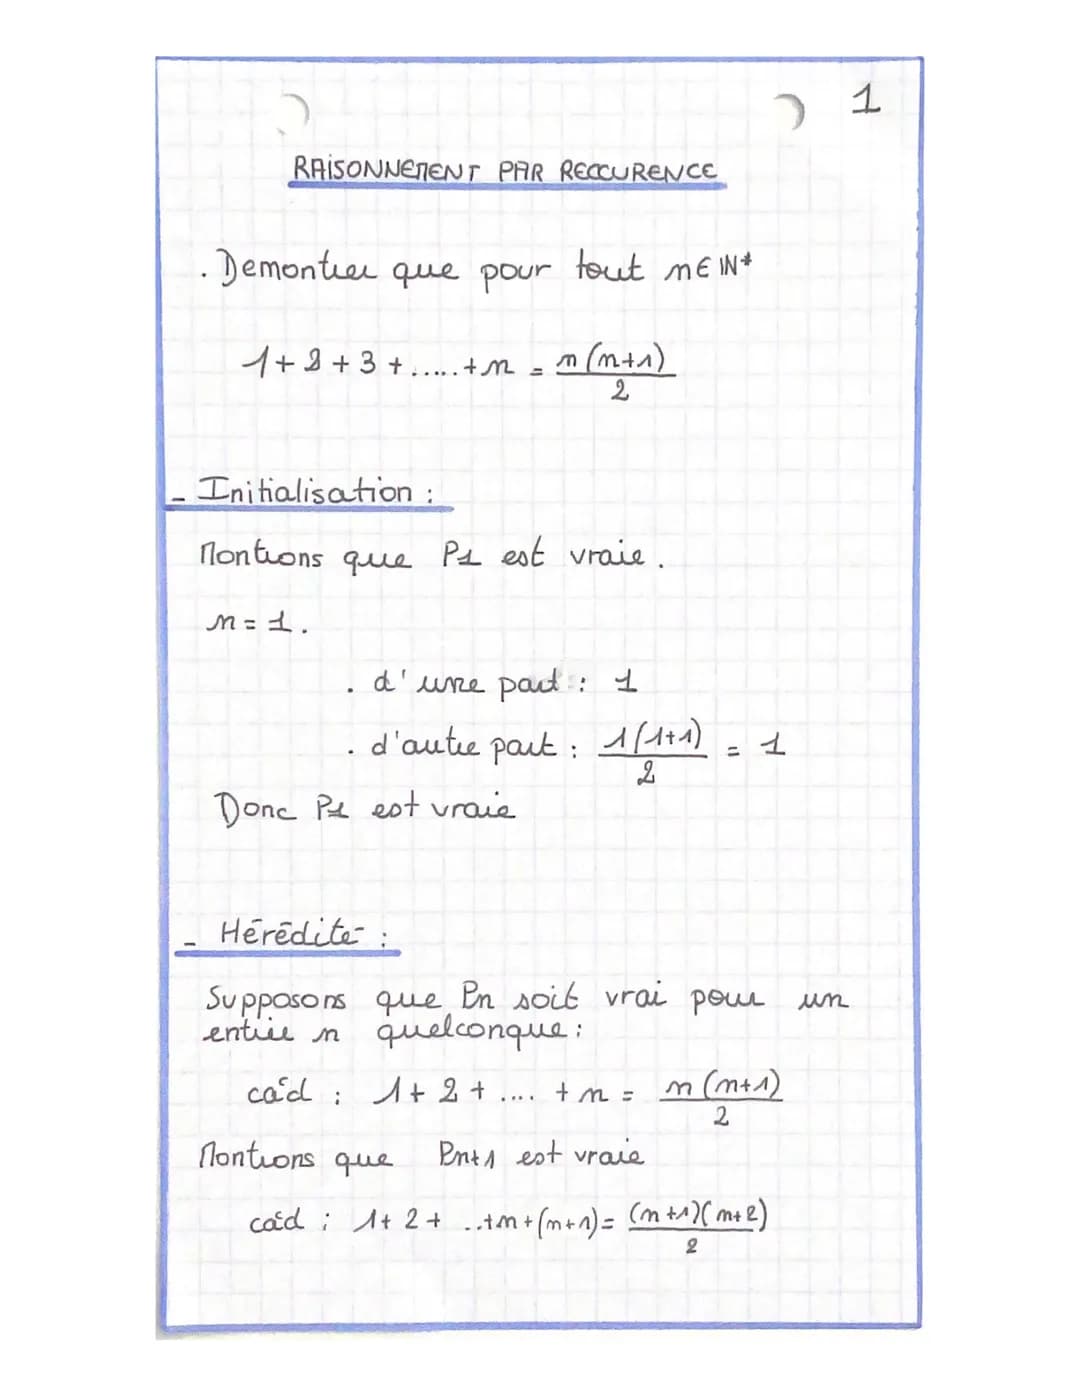 1
RAISONNEMENT PAR RECCURENCE
. Demontrer que pour tout n∈ℕ*
1+2+3+.....+n = n(n+1)/2
- Initialisation :
Montrons que P1 est vraie.
n=1.
. d'une part : 1
. d'autre part : 1(1+1)/2 = 1
Donc P1 est vraie
- Hérédité :
Supposons que Pn soit vrai pour un
entier n quelconque :
càd : 1+2+.... +n = n(n+1)/2
Montrons que Pn+1 est vraie
càd : 1+2+ ..+n+(n+1)= (n+1)(n+2)/2